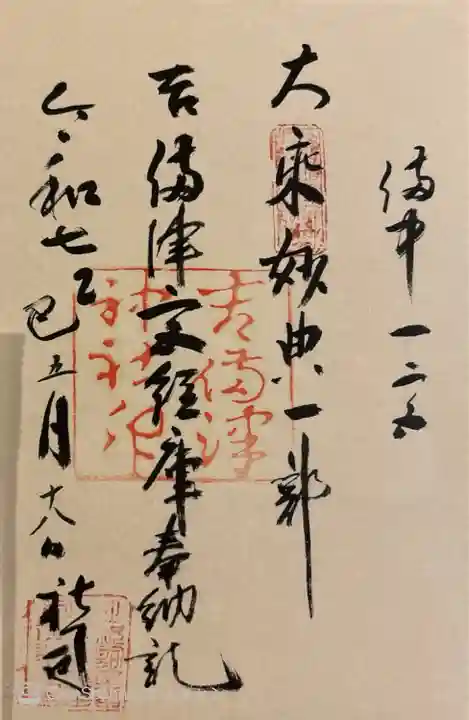 備中一之宮
大乘妙典一部
吉備津宮經庫奉納記
令和七乙巳五月十八日
吉備津
神社